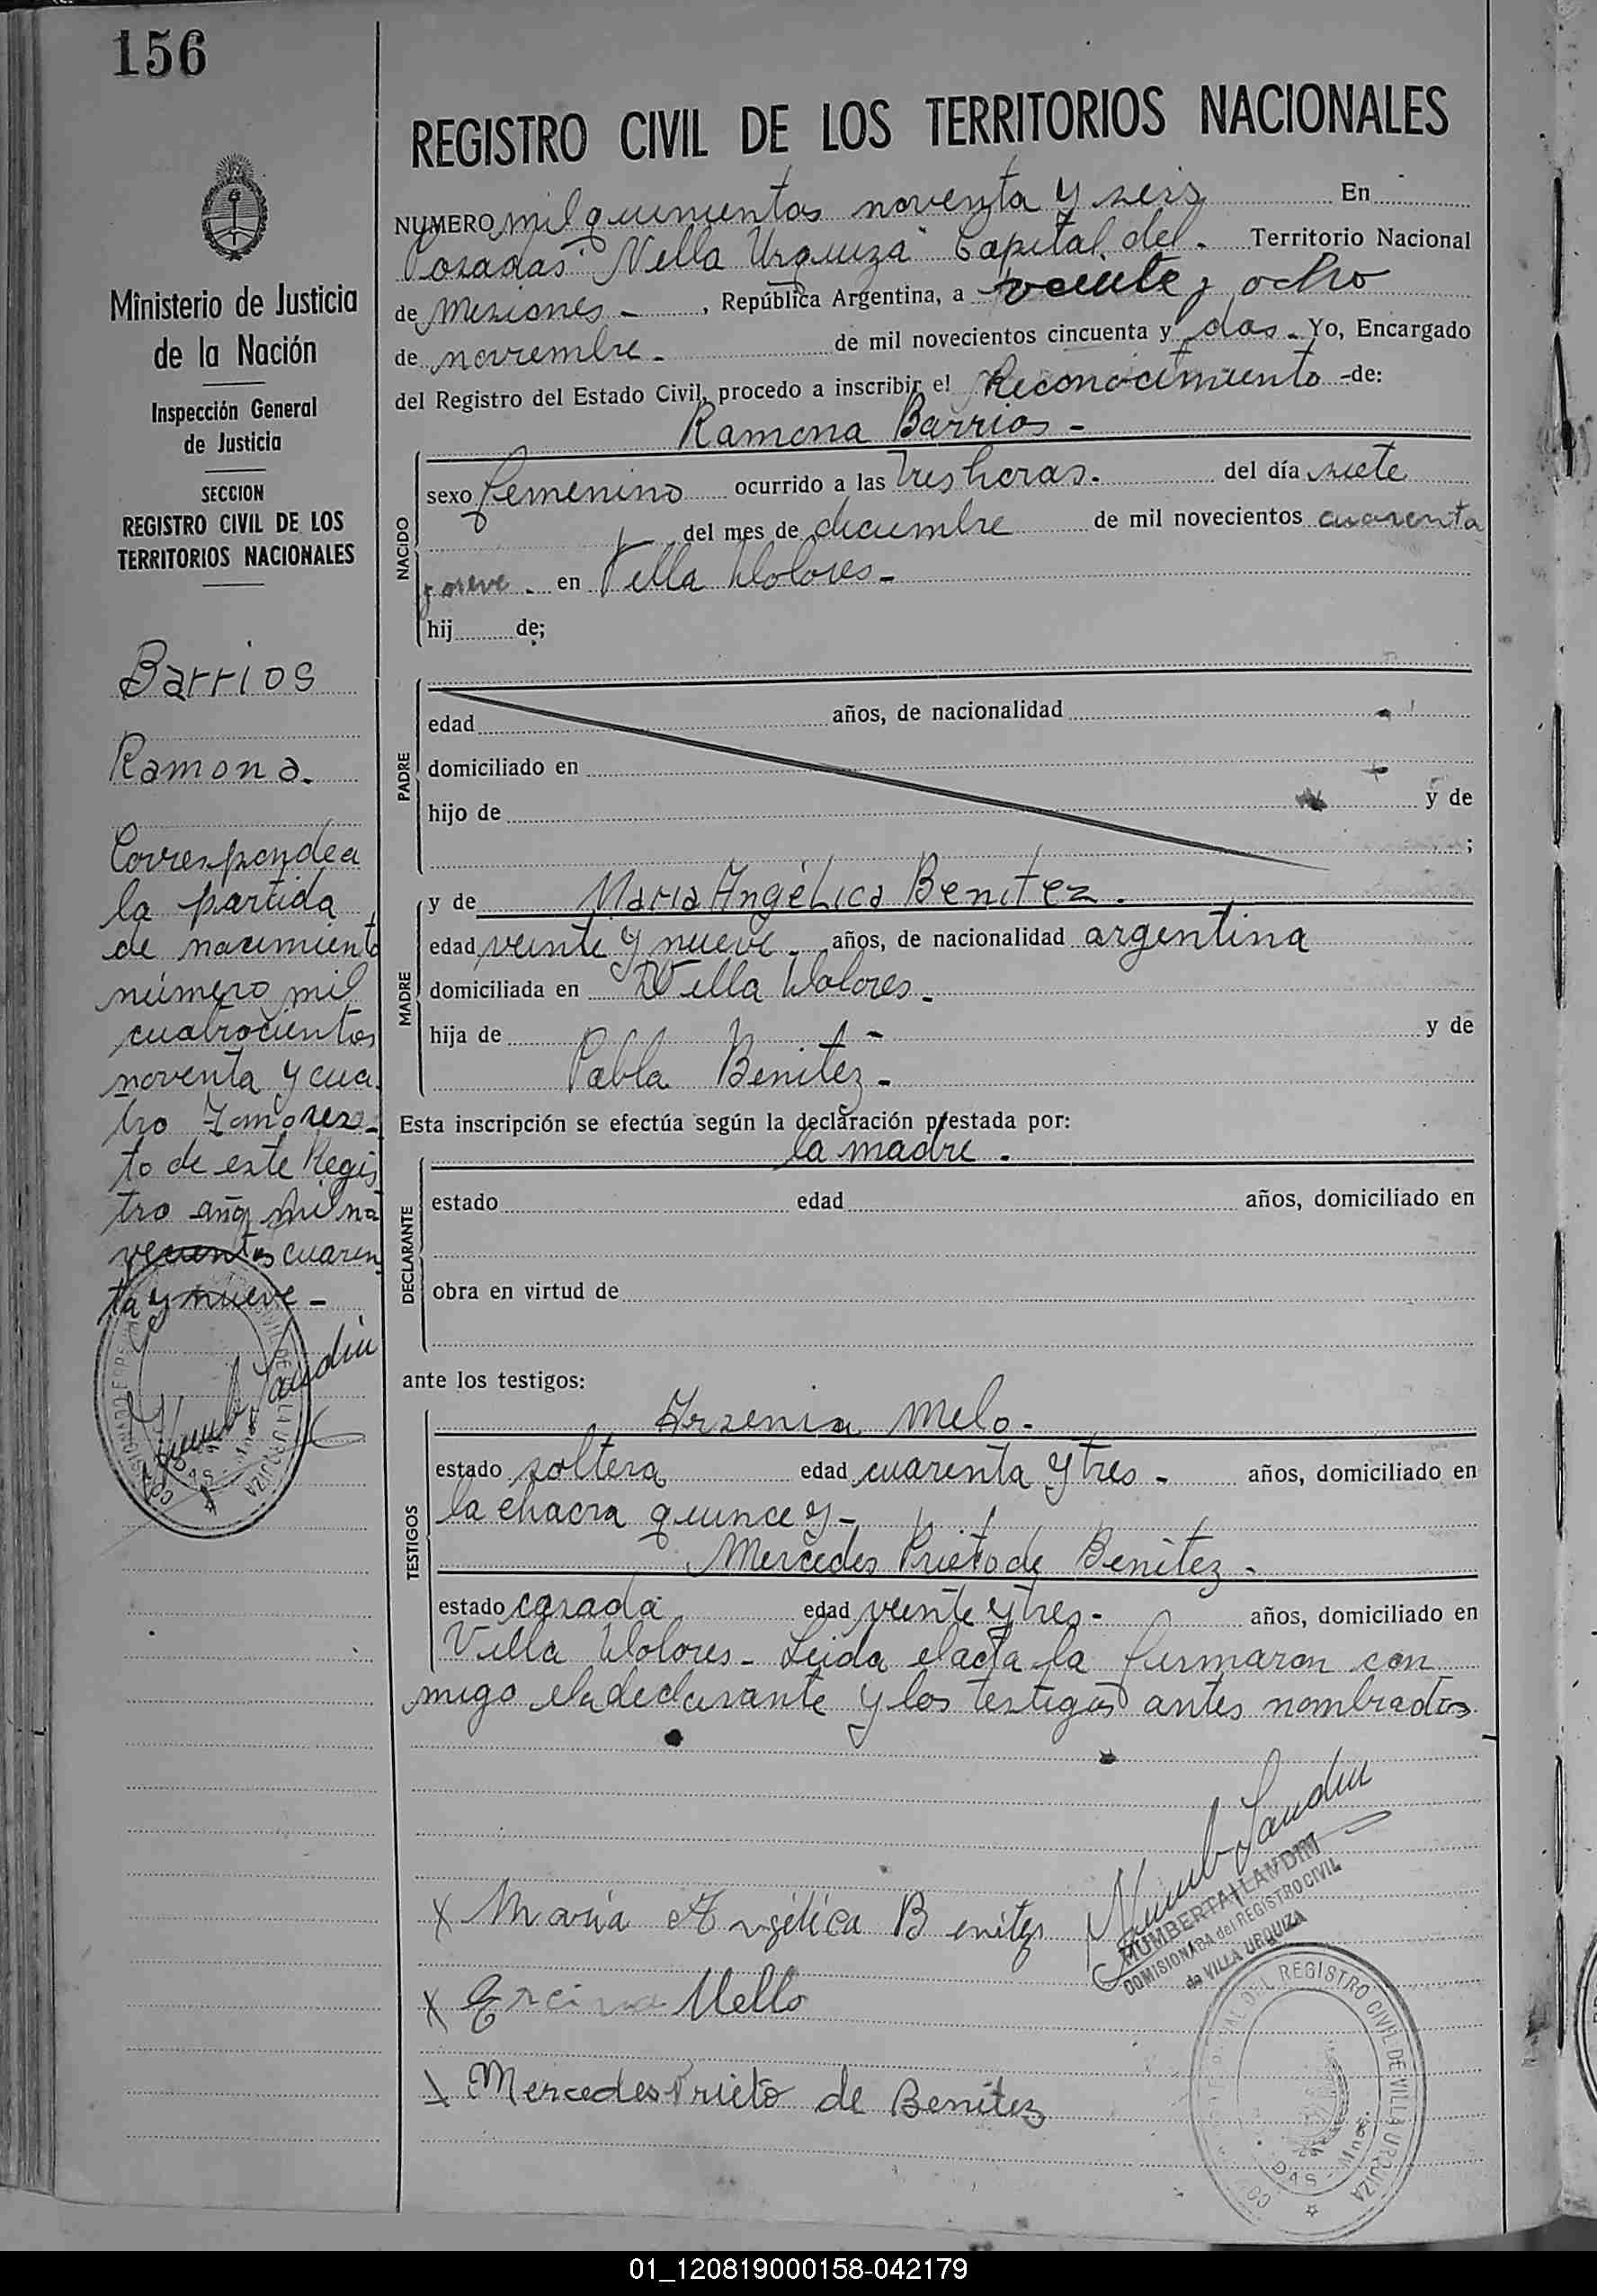 156
REGISTRO CIVIL DE LOS TERRITORIOS NACIONALES
Ministerio de Justicia
de la Nación
Inspección General
de Justicia
SECCION
REGISTRO CIVIL DE LOS
TERRITORIOS NACIONALES
Barrios
Ramona.
Corresponde a
la partida
de nacimiento
número mil
cuatrocientos
noventa y cua
tro
to de este Regis
tro año mil no
vecientos cuaren
ta y nueve -
NUMERO mil quinientos noventa y seis En
Posadas Villa Urquiza Capital del. Territorio Nacional
de Misiones - , República Argentina, a veinte y ocho
de noviembre - de mil novecientos cincuenta y dos. Yo, Encargado
del Registro del Estado Civil, procedo a inscribir el Reconocimiento -de:
Ramona Barrios -
NACIDO
sexo femenino ocurrido a las tres horas. del día siete
del mes de diciembre de mil novecientos cuarenta
y nueve. en Villa Dolores -
hij de;
PADRE
edad años, de nacionalidad
domiciliado en
hijo de y de
;
MADRE
y de María Angélica Benitez.
edad veinte y nueve. años, de nacionalidad argentina
domiciliada en Villa Dolores -
hija de - y de
Pabla Benitez -
Esta inscripción se efectúa según la declaración prestada por:
la madre.
DECLARANTE
estado edad años, domiciliado en
obra en virtud de
ante los testigos:
TESTIGOS
Arsenia Melo -
estado soltera edad cuarenta y tres - años, domiciliado en
la chacra quince y -
Mercedes Prieto de Benitez -
estado casada edad veinte y tres - años, domiciliado en
Villa Dolores - Leida el acta la firmaron con
migo la declarante y los testigos antes nombrados
Humb Landin
HUMBERTA I LANDIM
COMISIONADA del REGISTRO CIVIL
de VILLA URQUIZA
x María Angélica Benitez
x Ercina Mello
x Mercedes Prieto de Benitez
REGISTRO CIVIL DE VILLA URQUIZA
01_120819000158-042179